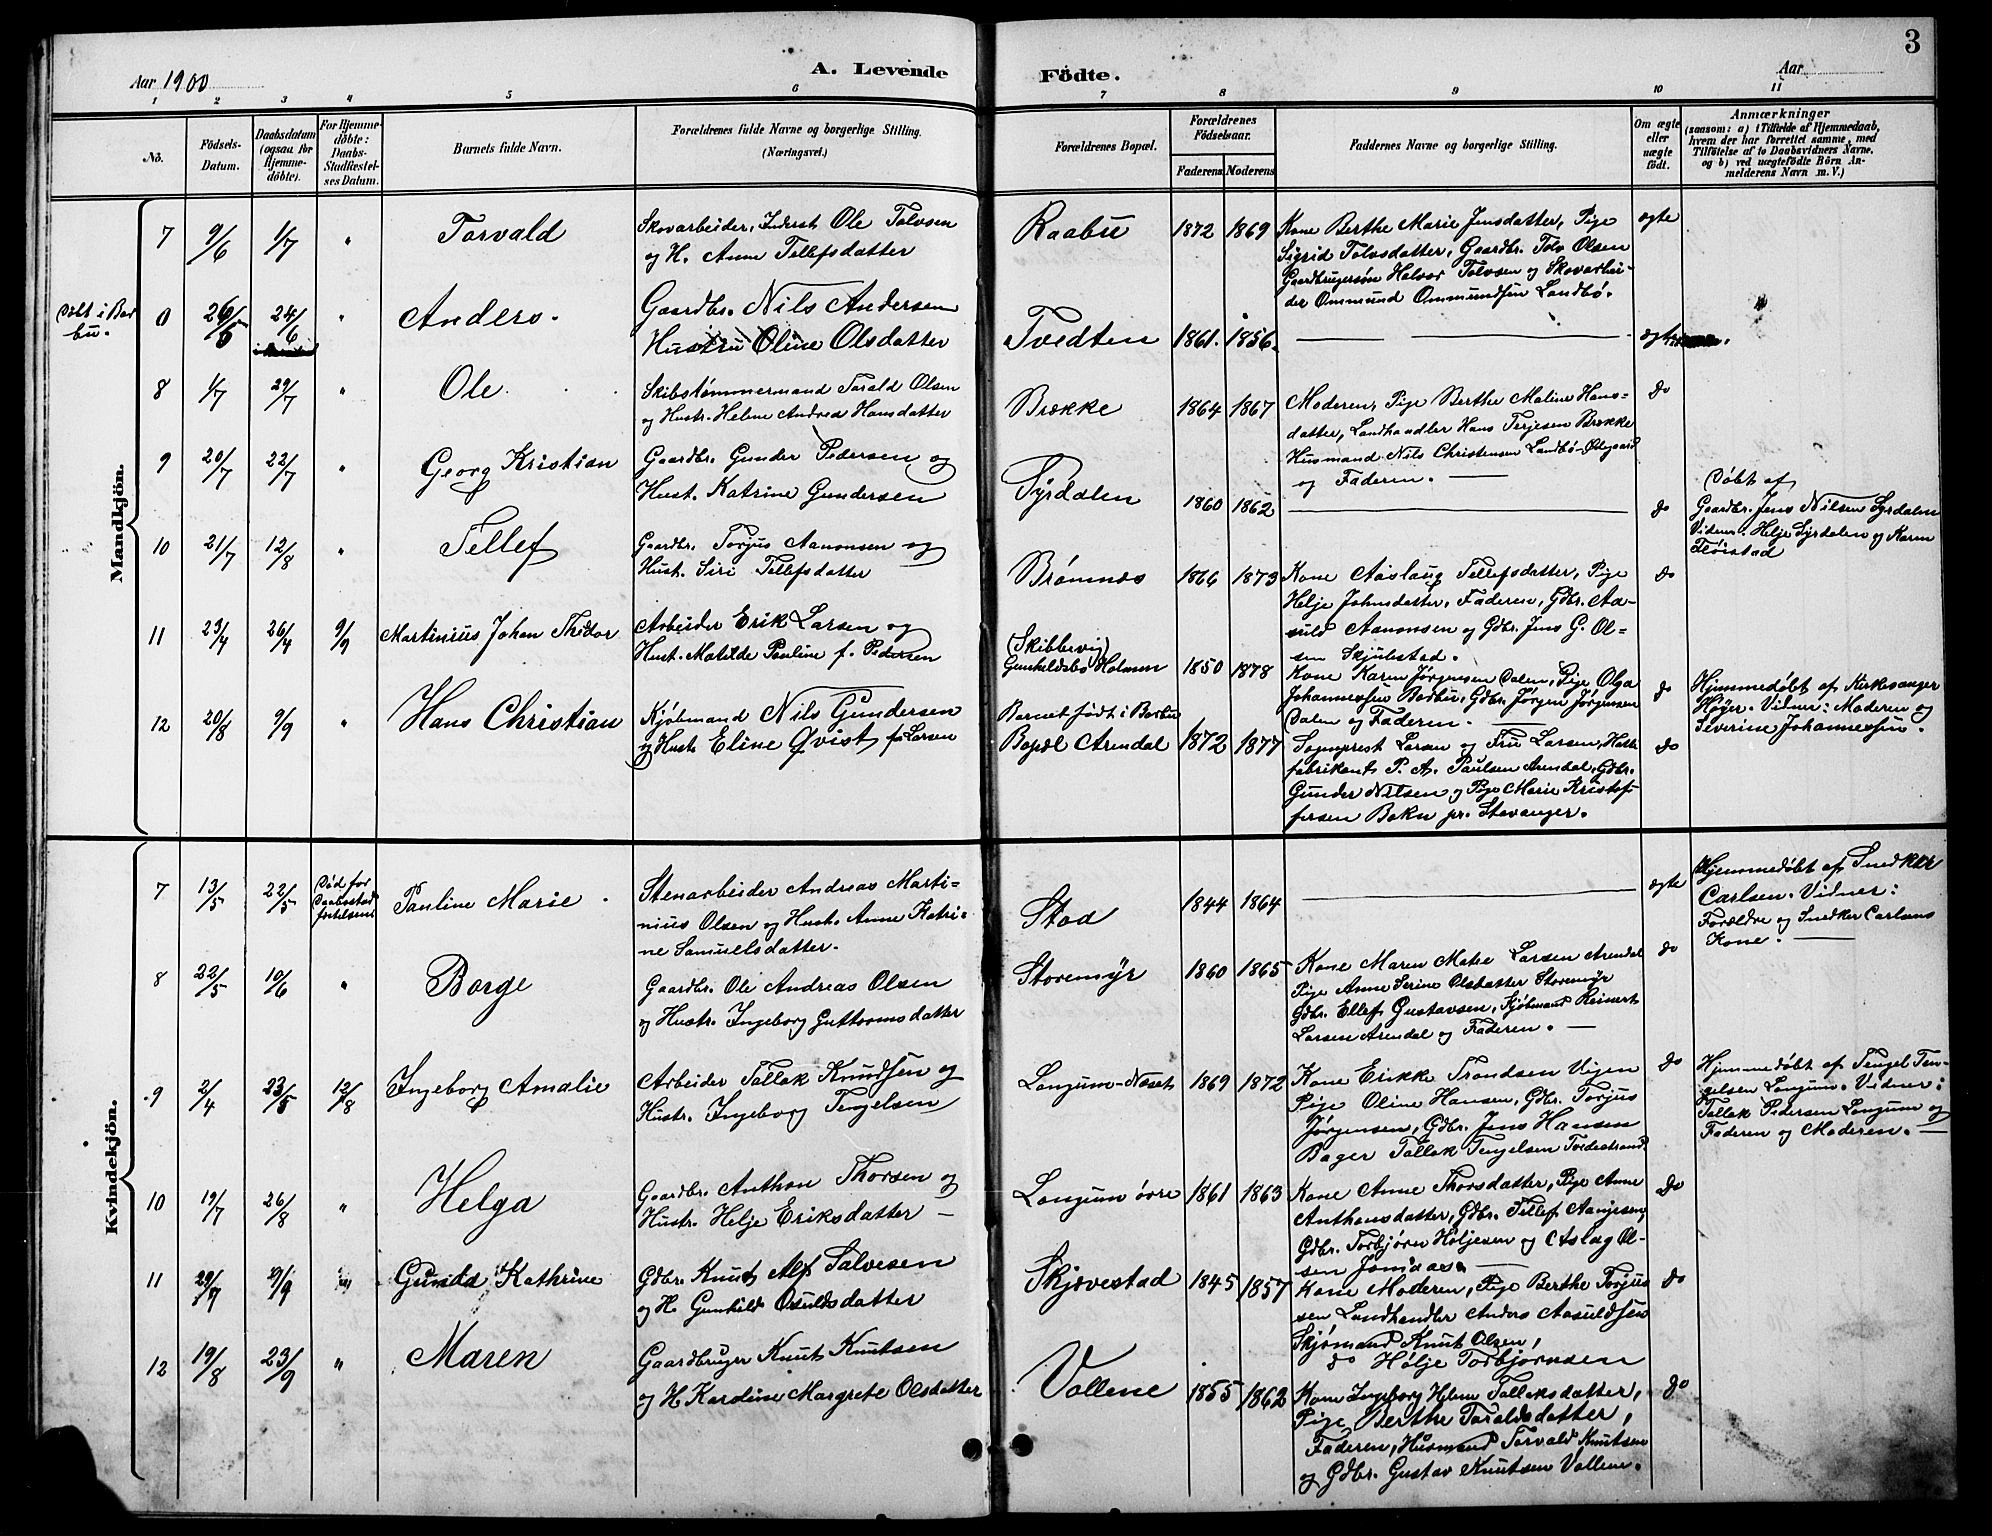 3
Aar 1900
A. Levende Fødte.
Aar
1 2 3 4 5 6 7 8 9 10 11
No.
Fødsels-Datum.
Daabsdatum (ogsaa for Hjemmedøbte).
For Hjemmedøbte: Daabs-Stadfæstelses Datum.
Barnets fulde Navn.
Forældrenes fulde Navne og borgerlige Stilling.
(Næringsvei.)
Forældrenes Bopæl.
Forældrenes Fødselsaar.
Faderens Moderens
Faddernes Navne og borgerlige Stilling.
Om ægte eller uægte født.
Anmærkninger
(saasom: a) i Tilfælde af Hjemmedaab,
hvem der har forrettet samme, med
Tilføielse af to Daabsvidners Navne,
og b) ved uægtefødte Børn An-
melderens Navn m. V.)
Mandkjön.
7 9/6 1/7 " Torvald
Skovarbeider, Inderst Ole Tolvsen
og H. Anne Tellefsdatter
Raabu 1872 1869
Kone Berthe Marie Jensdatter, Pige
Sigrid Tolvsdatter, Gaardbr. Tolv Olsen
Gaardbrugersøn Halvor Tolvsen og Skovarbei-
der Ommund Ommundsen Landbø.
ægte
Døbt i Bar
bu.
0 26/5 24/6 " Anders.
Gaardbr. Nils Andersen
Hustru Oline Olsdatter
Tvedten 1861. 1856.
ægte
8 1/7 29/7 " Ole.
Skibstømmermand Tarald Olsen
og Hustr. Helene Andrea Hansdatter
Brække 1864 1867
Moderen, Pige Berthe Maline Hans-
datter, Landhandler Hans Terjesen Brække
Husmand Nils Christensen Landbø-Ødegaard
og Faderen.
do
9 20/7 22/7 " Georg Kristian
Gaardbr. Gunder Pedersen og
Hust. Katrine Gundersen
Syrdalen 1860 1862
do
Døbt af
Gaardbr. Jens Nilsen Syrdalen
Vidner: Helje Syrdalen og Karen
Fløistad
10 21/7 12/8 " Tellef
Gaardbr. Torjus Aanonsen og
Hust. Siri Tellefsdatter
Brømnes 1866 1873
Kone Aaslaug Tellefsdatter, Pige
Helje Johnsdatter, Faderen, Gdbr. Aa-
suld Aanonsen og Gdbr. Jens G. Ol-
sen Skjulestad.
do
11 23/4 26/4 9/9 Martinius Johan Thidor
Arbeider Erik Larsen og
Hust. Matilde Pauline f. Pedersen
(Skibbervig)
Gunheldsbo Holmen 1850 1878
Kone Karen Jørgensen Dalen, Pige Olga
Johannessen Barbu, Gdbr. Jørgen Jørgensen
Dalen og Faderen.
do
Hjemmedøbt af Kirkesanger
Høyer. Vidner: Moderen og
Severine Johannessen.
12 20/8 9/9 " Hans Christian
Kjøbmand Nils Gundersen
og Hustr. Eline Qvist f. Larsen
Barnet født i Barbu
Bopæl Arendal 1872 1877
Sogneprest Larsen og Fru Larsen, Hatte
fabrikant P. A. Paulsen Arendal, Gdbr.
Gunder Nilsen og Pige Marie Kristof-
fersen Bokn pr. Stavanger.
do
Kvindekjön.
7 13/5 22/5 Død før Daabsstadfestelsen Pauline Marie
Stenarbeider Andreas Marti-
nius Olsen og Hust. Anne Katri-
ne Samuelsdatter.
Stad 1844 1864
ægte
Hjemmedøbt af Snedker
Carlsen. Vidner:
Forældre og Snedker Carlsens
Kone.
8 22/5 10/6 " Borge
Gaardbr. Ole Andreas Olsen
og Hustr. Ingeborg Guttormsdatter
Storemyr 1860 1865
Kone Maren Matie Larsen Arendal
Pige Anne Serine Olsdatter Storemyr
Gdbr. Ellef Gustavsen, Kjøbmand Reinert
Larsen Arendal og Faderen.
do
9 2/4 23/5 12/8 Ingeborg Amalie
Arbeider Tallak Knudsen og
Hustr. Ingeborg Tengelsen
Longum-Næset 1869 1872
Kone Erikke Trondsen Vigen
Pige Oline Hansen, Gdbr. Torjus
Jørgensen, Gdbr. Jens Hansen
Bager Tallak Tengelsen Tvedestrand
do
Hjemmedøbt af Tengel Ten-
gelsen Longum. Vidner:
Tallak Pedersen Longum og
Faderen og Moderen.
10 19/7 26/8 " Helga
Gaardbr. Anthon Thorsen og
Hustr. Helje Eriksdatter
Longum øvre 1861 1863
Kone Anne Thorsdatter, Pige Anne
Anthonsdatter, Gdbr. Tellef Aanjesen,
Gdbr. Torbjørn Høljesen og Aslag Ol-
sen Jomaas
do
11 29/7 9/9 " Gunda Kathrine
Gdbr. Knut Alf Salvesen
og H. Gunhild Osuldsdatter
Skjævestad 1845 1857
Kone Moderen, Pige Berthe Torjus
sen Landhandler Anders Aasuldsen
Skjømand Knut Olsen,
do Hølje Torbjørnsen
do
12 19/8 23/9 " Maren
Gaardbruger Knut Knutsen
og H Karoline Margrete Olsdatter
Vollene 1855 1862
Kone Ingeborg Helene Tallaksdatter,
Pige Berthe Taraldsdatter,
Faderen, Husmand Torvald Knutsen
og Gdbr. Gustav Knutsen Vollene.
do